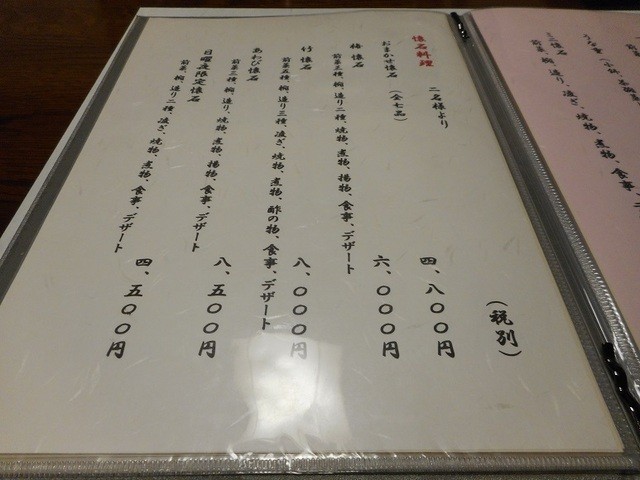 ミニ懐石
前菜、椀、造り、凌ぎ、焼物、煮物、食事、
懐石料理 二名様より (税別)
おまかせ懐石 (全七品) 四、八〇〇円
椿 懐石 六、〇〇〇円
前菜三種、椀、造り二種、焼物、煮物、揚物、食事、デザート
竹 懐石 八、〇〇〇円
前菜五種、椀、造り三種、凌ぎ、焼物、煮物、酢の物、食事、デザート
あわび懐石 八、五〇〇円
前菜三種、椀、造り、焼物、煮物、揚物、食事、デザート
日曜夜限定懐石 四、五〇〇円
前菜、椀、造り二種、凌ぎ、焼物、煮物、食事、デザート